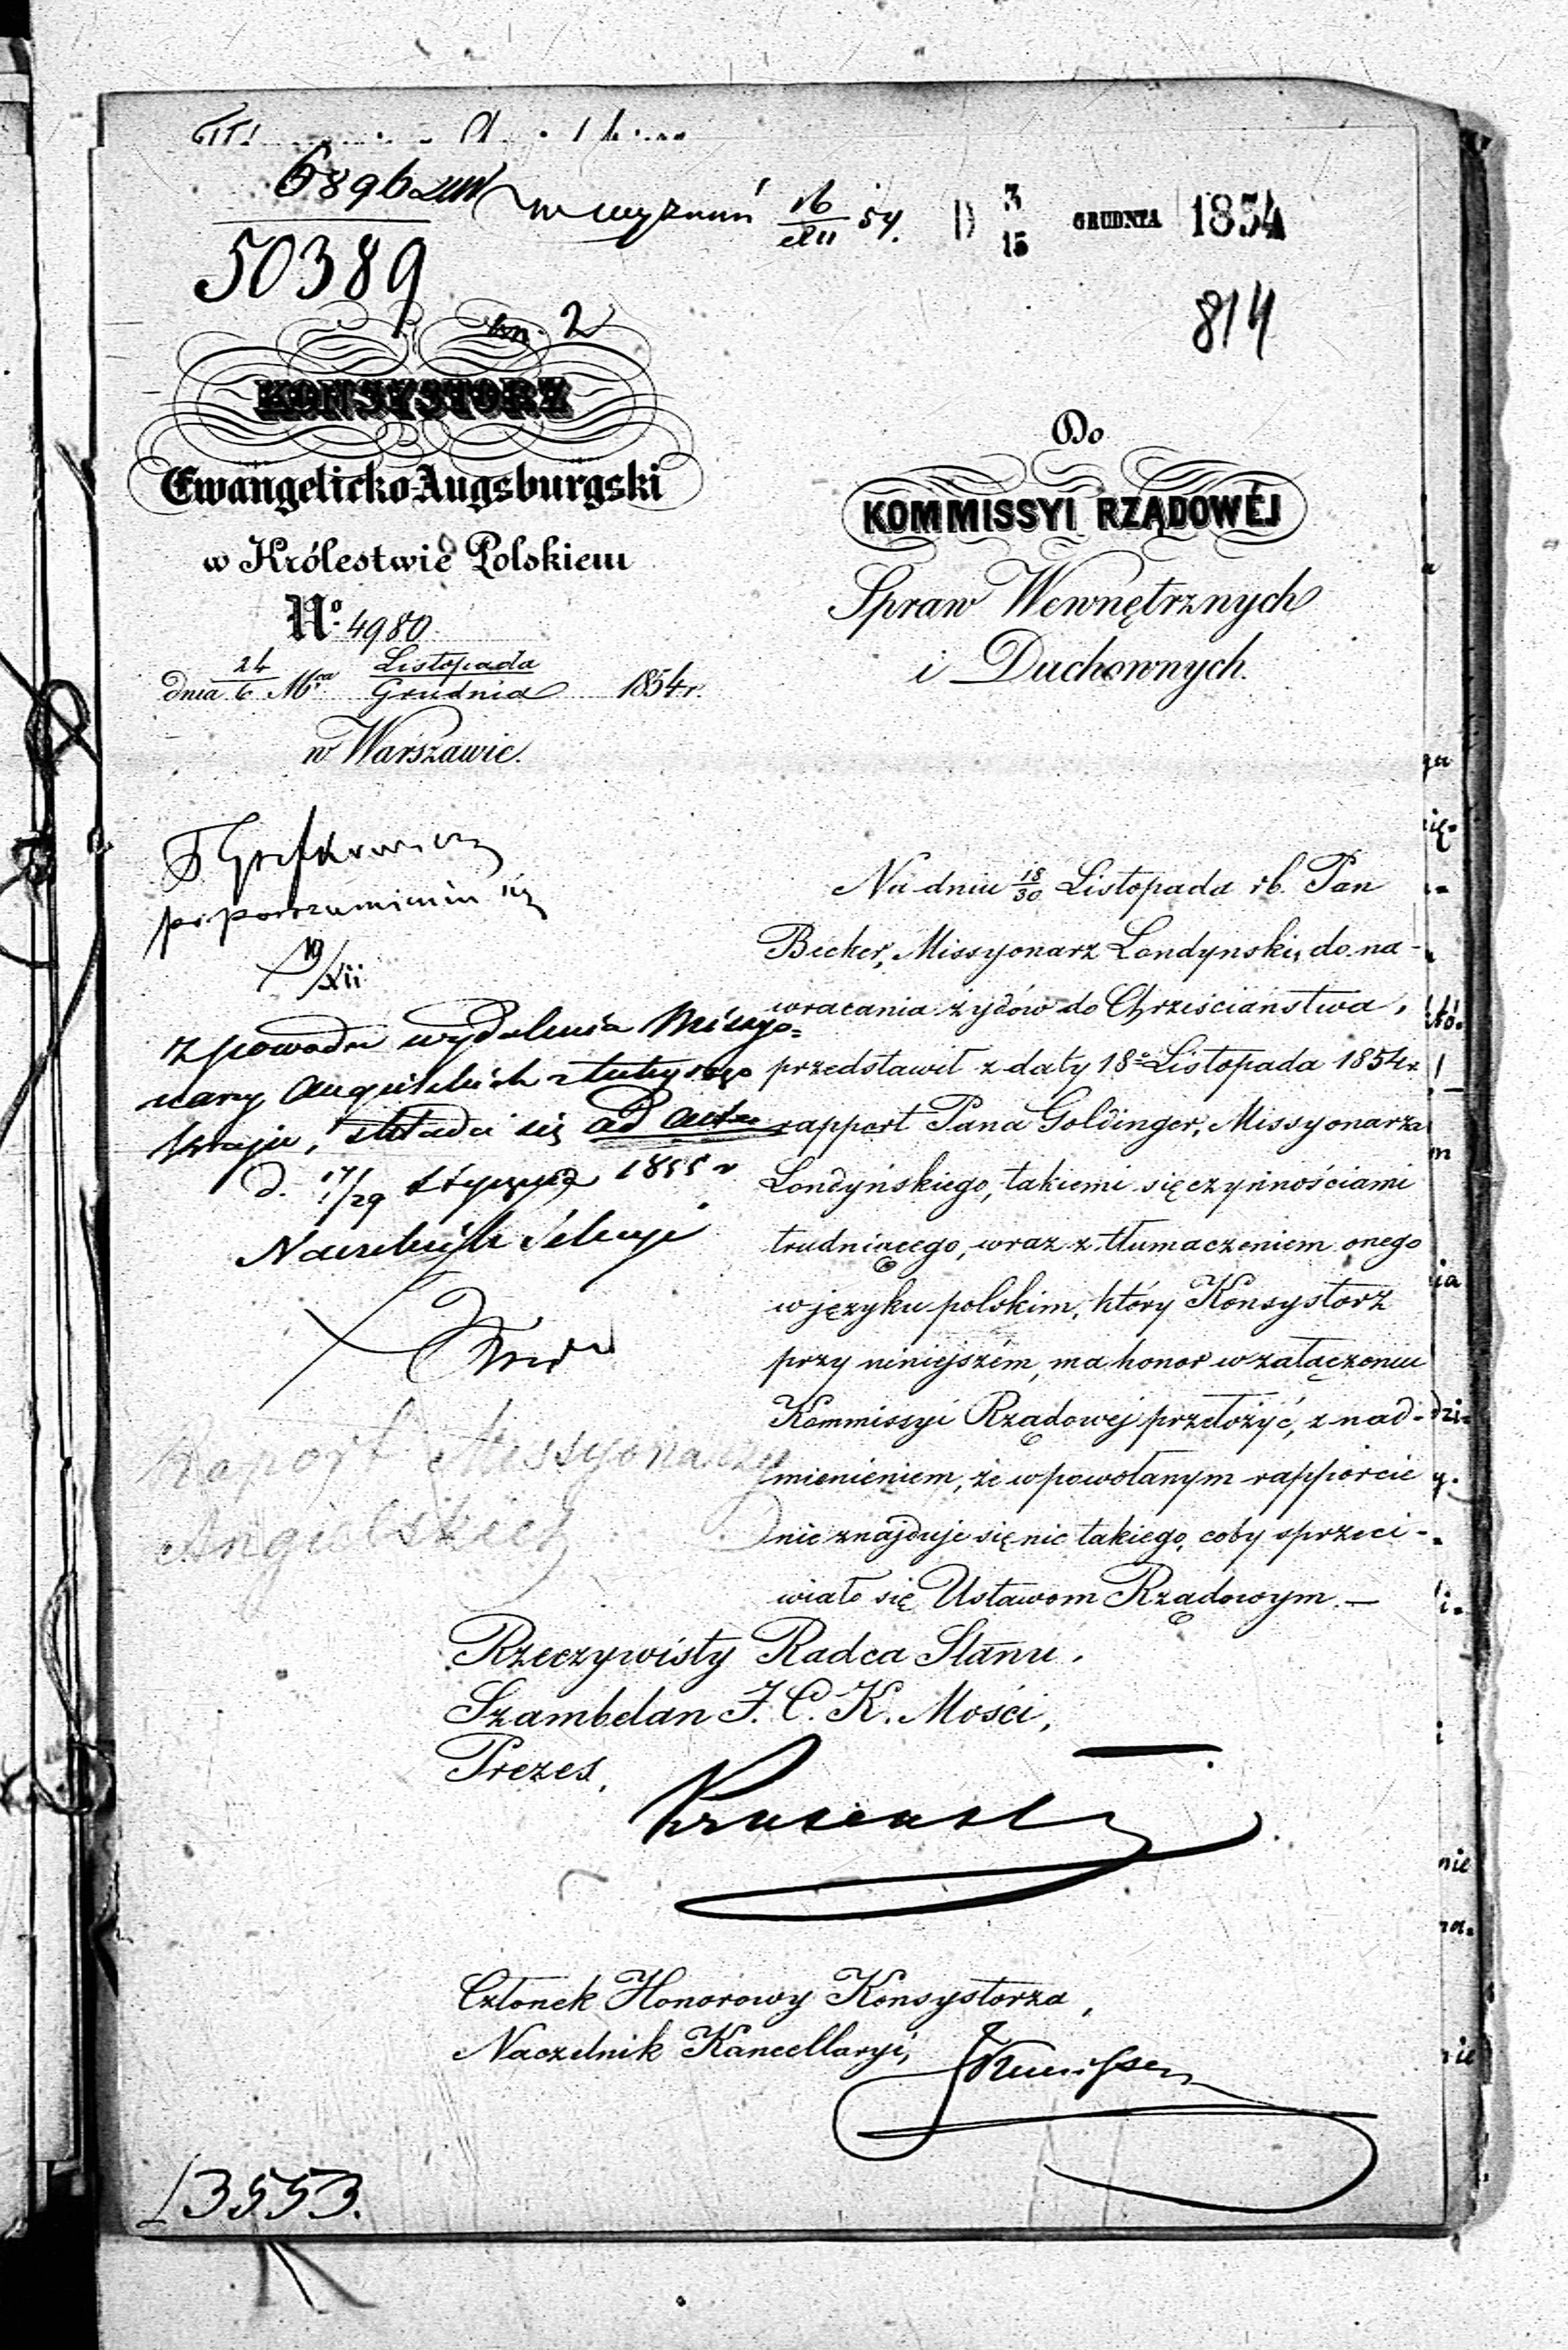 6896
w wyznań 16/XII 54. D 3/15 GRUDNIA 1854
50389
814
an. 2
KONSYSTORZ
Ewangelicko Augsburgski
w Królestwie Polskiem
No. 4980.
dnia 24/6 Mca Listopada/Grudnia 1854 r.
w Warszawie.
Do
KOMMISSYI RZĄDOWÉJ
Spraw Wewnętrznych
i Duchownych.
po porozumieniu się
19/XII
z powodu wydalenia Missyo=
narzy Angielskich z tutejszego
kraju, składa się ad acta
d. 17/29 Stycznia 1855 r
Naczelnik Sekcyi
Raport Missyonarzy
Angielskich
Na dniu 18/30 Listopada rb. Pan
Becker, Missyonarz Londynski, do na-
wracania żydów do Chrześciaństwa,
przedstawił z daty 18o Listopada 1854 r.
rapport Pana Goldinger, Missyonarza
Londyńskiego, takiemi się czynnościami
trudniącego, wraz z tłumaczeniem onego
w języku polskim, który Konsystorz
przy niniejszém, ma honor w załączeniu
Kommissyi Rządowej przełożyć, z nad-
mienieniem, że w powołanym rapporcie
nie znajduje się nic takiego, coby sprzeci-
wiało się Ustawom Rządowym. —
Rzeczywisty Radca Stanu,
Szambelan J. C. K. Mości,
Prezes,
Członek Honorowy Konsystorza,
Naczelnik Kancellaryi,
13553.